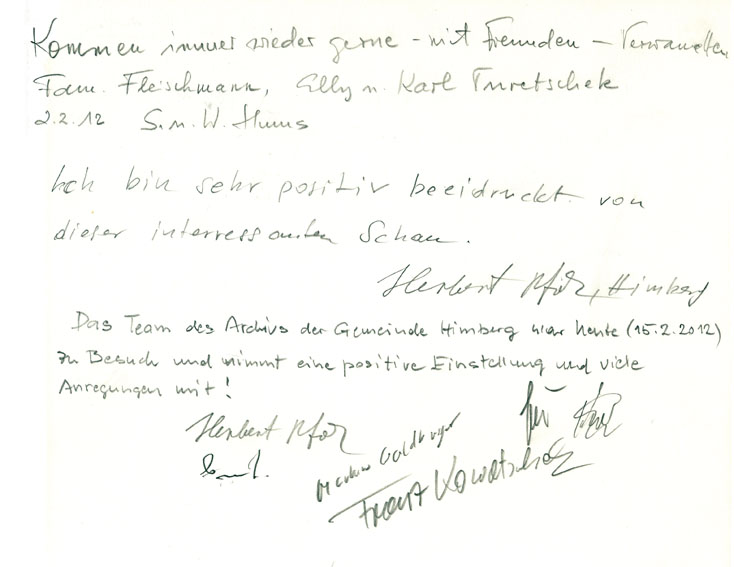 Kommen immer wieder gerne – mit Freunden – Verwandten
Fam. Fleischmann, Elly u. Karl Turetschek
2.2.12 S. u. W.
Ich bin sehr positiv beeidruckt von
dieser interressanten Schau.
Herbert Himberg
Das Team des Archivs der Gemeinde Himberg war heute (15.2.2012)
zu Besuch und nimmt eine positive Einstellung und viele
Anregungen mit!
Herbert
Franz